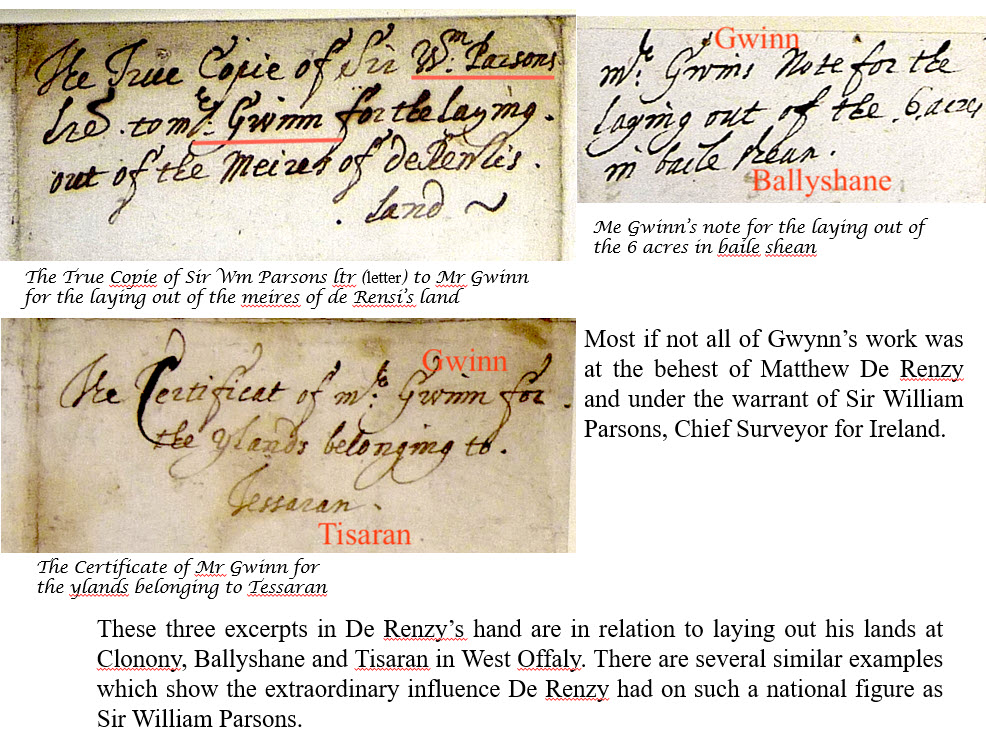 The True Copie of Sir Wm. Parsons
tre to mr. Gwinn for the laying
out of the Meires of deRensis
land
Gwinn
mr. Gwins Note for the
laying out of the 6 acres
in baile shean.
Ballyshane
Me Gwinn's note for the laying out of
the 6 acres in baile shean
The True Copie of Sir Wm Parsons ltr (letter) to Mr Gwinn
for the laying out of the meires of de Rensi's land
Gwinn
The Certificat of mr. Gwinn for
the ylands belonging to.
Tessaran.
Tisaran
The Certificate of Mr Gwinn for
the ylands belonging to Tessaran
Most if not all of Gwynn's work was
at the behest of Matthew De Renzy
and under the warrant of Sir William
Parsons, Chief Surveyor for Ireland.
These three excerpts in De Renzy's hand are in relation to laying out his lands at
Clonony, Ballyshane and Tisaran in West Offaly. There are several similar examples
which show the extraordinary influence De Renzy had on such a national figure as
Sir William Parsons.